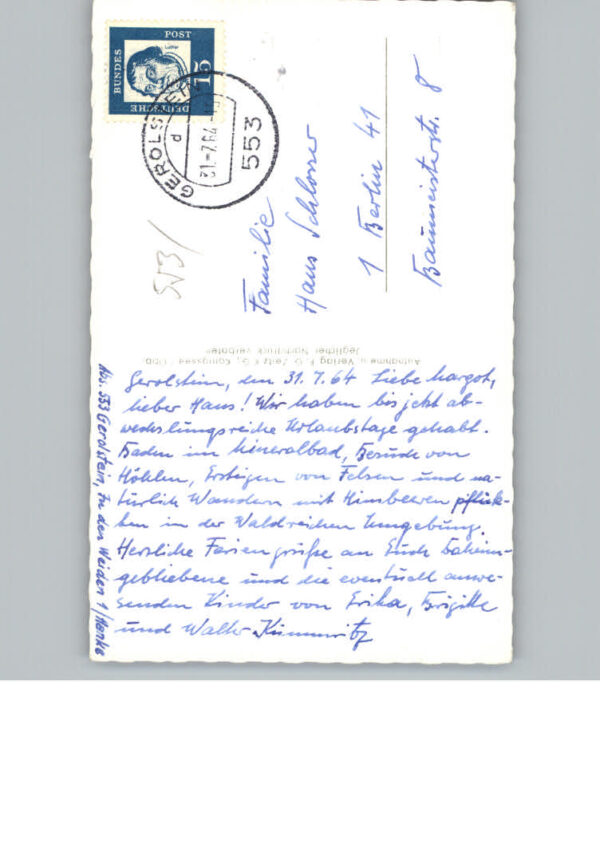 DEUTSCHE
BUNDES
POST
15
Luther
GEROLSTEIN
d
31.-7.64
553
553/
Familie
Hans Schlosser
1 Berlin 41
Baumeisterstr. 8
Aufnahme u. Verlag
Jeglicher Nachdruck verboten
Abs. 553 Gerolstein, In den Weiden 1/Henke
Gerolstein, den 31.7.64 Liebe Margot,
lieber Hans! Wir haben bis jetzt ab-
wechslungsreiche Urlaubstage gehabt.
Baden im Mineralbad, Besuch von
Höhlen, Ersteigen von Felsen und na-
türlich Wandern mit Himbeeren pflük-
ken in der Waldreichen Umgebung.
Herzliche Feriengrüße an Euch Daheim-
gebliebene und die eventuell anwe-
senden Kinder von Erika, Brigitte
und Walter